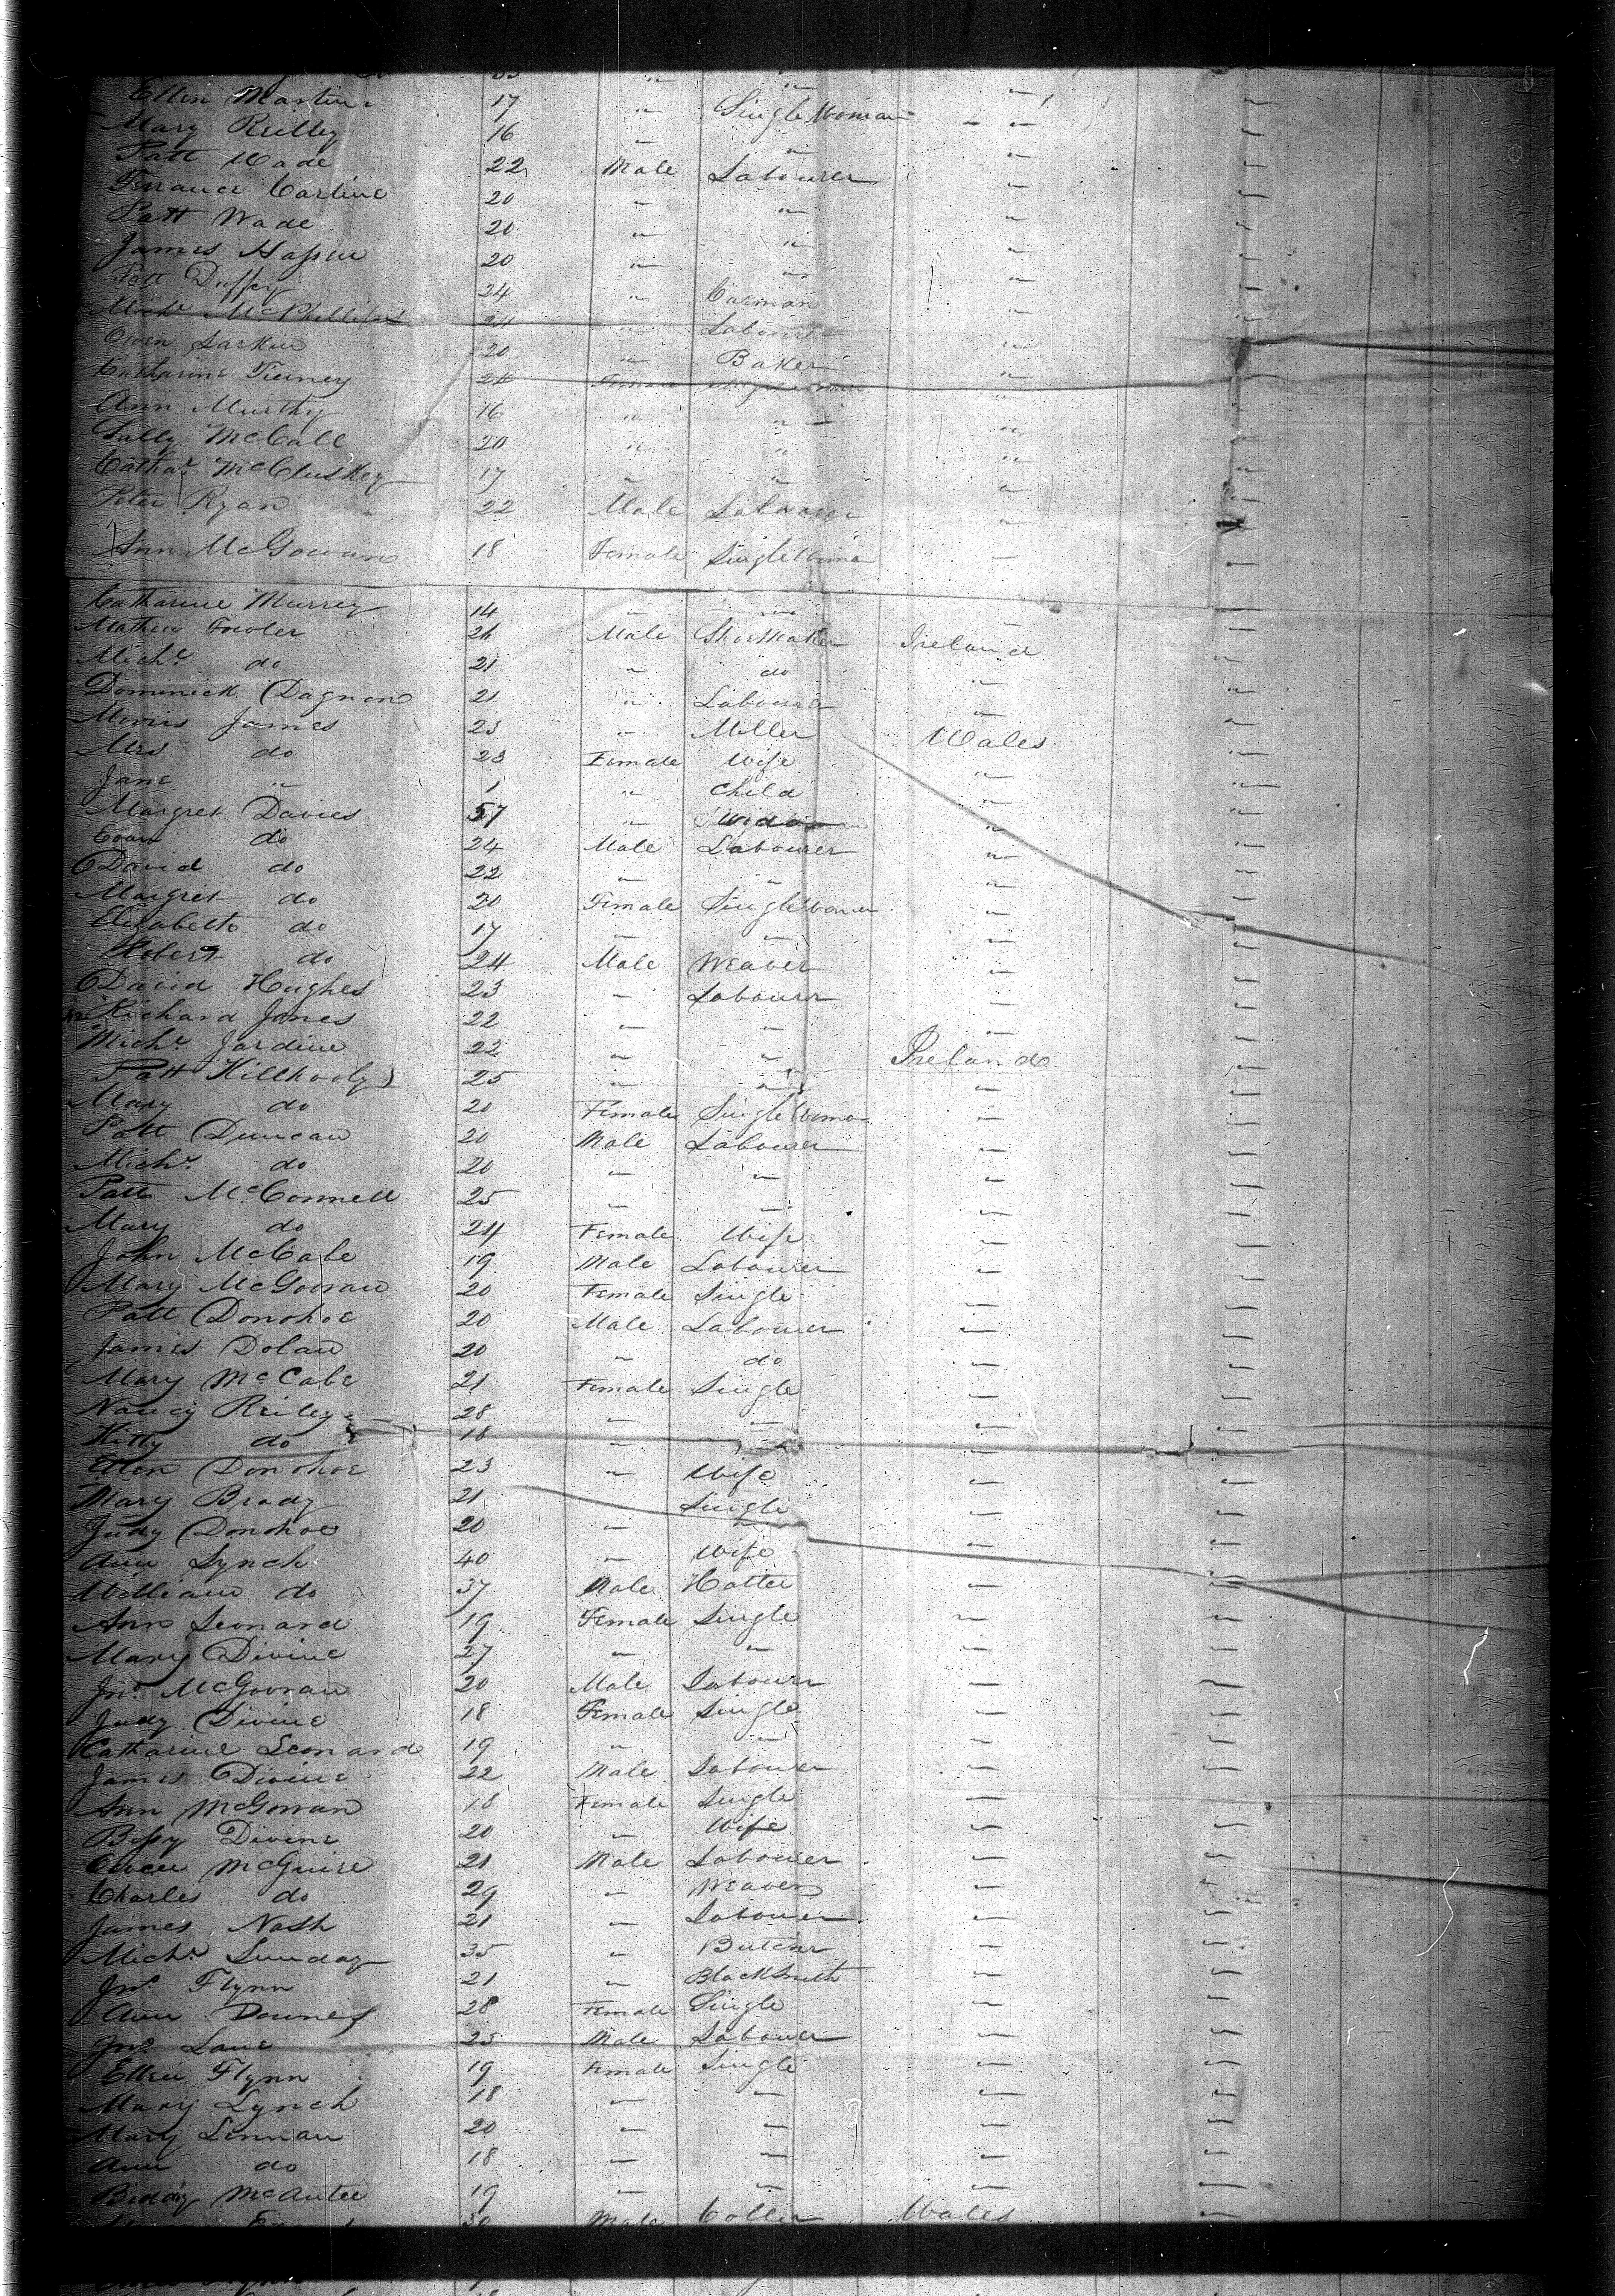 Ellen Martin 17 " Single Woman "
Mary Reilly 16 " " "
Patt Wade 22 Male Labourer "
Terrance Carline 20 " " "
Patt Wade 20 " " "
James 20 " " "
Patt Duffey 24 " Carman "
Michl McPhillips 24 " Labourer "
Owen Larkin 20 " Baker "
Catharine Tierney 24 Female "
Ann Murthy 16 " " "
Sally McCall 20 " " "
Cathar McCluskey 17 " " "
Peter Ryan 22 Male Labourer "
Ann McGowan 18 Female Single Woma "
Catharine Murrey 14 " " "
Mathew Fowler 26 Male Shoemaker Ireland "
Michl do 21 " do " "
Dominick Dagnon 21 " Labourer " "
Morris James 25 " Miller Wales "
Mrs do 23 Female Wife " "
Jane " 1 " Child " "
Margret Davies 57 " Widow " "
Evan do 24 Male Labourer " "
David do 22 " " " "
Margret do 20 Female Single Woman " "
Elizabeth do 17 " " " "
Robert do 24 Male Weaver " "
David Hughes 23 " Labourr " "
Richard Jones 22 " " " "
Michl Jardine 22 " " Ireland "
Patt Killhooly 25 " " " "
Mary do 20 Female Single Woma " "
Patt Duncan 20 Male Labourer " "
Michl do 20 " " " "
Patt McConnell 25 " " " "
Mary do 24 Female Wife " "
John McCabe 19 Male Labourer " "
Mary McGowan 20 Female Single " "
Patt Donohoe 20 Male Labourer " "
James Dolan 20 " do " "
Mary McCabe 21 Female Single " "
Nancy Reiley 28 " " " "
Kitty do 18 " " " "
Ellen Donohoe 23 " Wife " "
Mary Brady 21 " Single " "
Judy Donohoe 20 " " " "
Ann Lynch 40 " Wife " "
William do 37 Male Hatter " "
Ann Leonard 19 Female Single " "
Mary Divine 27 " " " "
Jno. McGowan 20 Male Labourr " "
Judy Divine 18 Female Single " "
Catharine Leonard 19 " " " "
James Divine 22 Male Labourer " "
Ann McGowan 18 Female Single " "
Bessy Divine 20 " Wife " "
Owen McGuire 21 Male Labourer " "
Charles do 29 " Weaver " "
James Nash 21 " Labourer " "
Michl Sunday 35 " Butcher " "
Jno. Flynn 21 " BlackSmith " "
Ann Downes 28 Female Single " "
Jno. Lane 25 Male Labourer " "
Ellen Flynn 19 Female Single " "
Mary Lynch 18 " " " "
Mary Lennan 20 " " " "
Ann do 18 " " " "
Biddy McAntee 19 " " " "
30 Male Collier Wales "